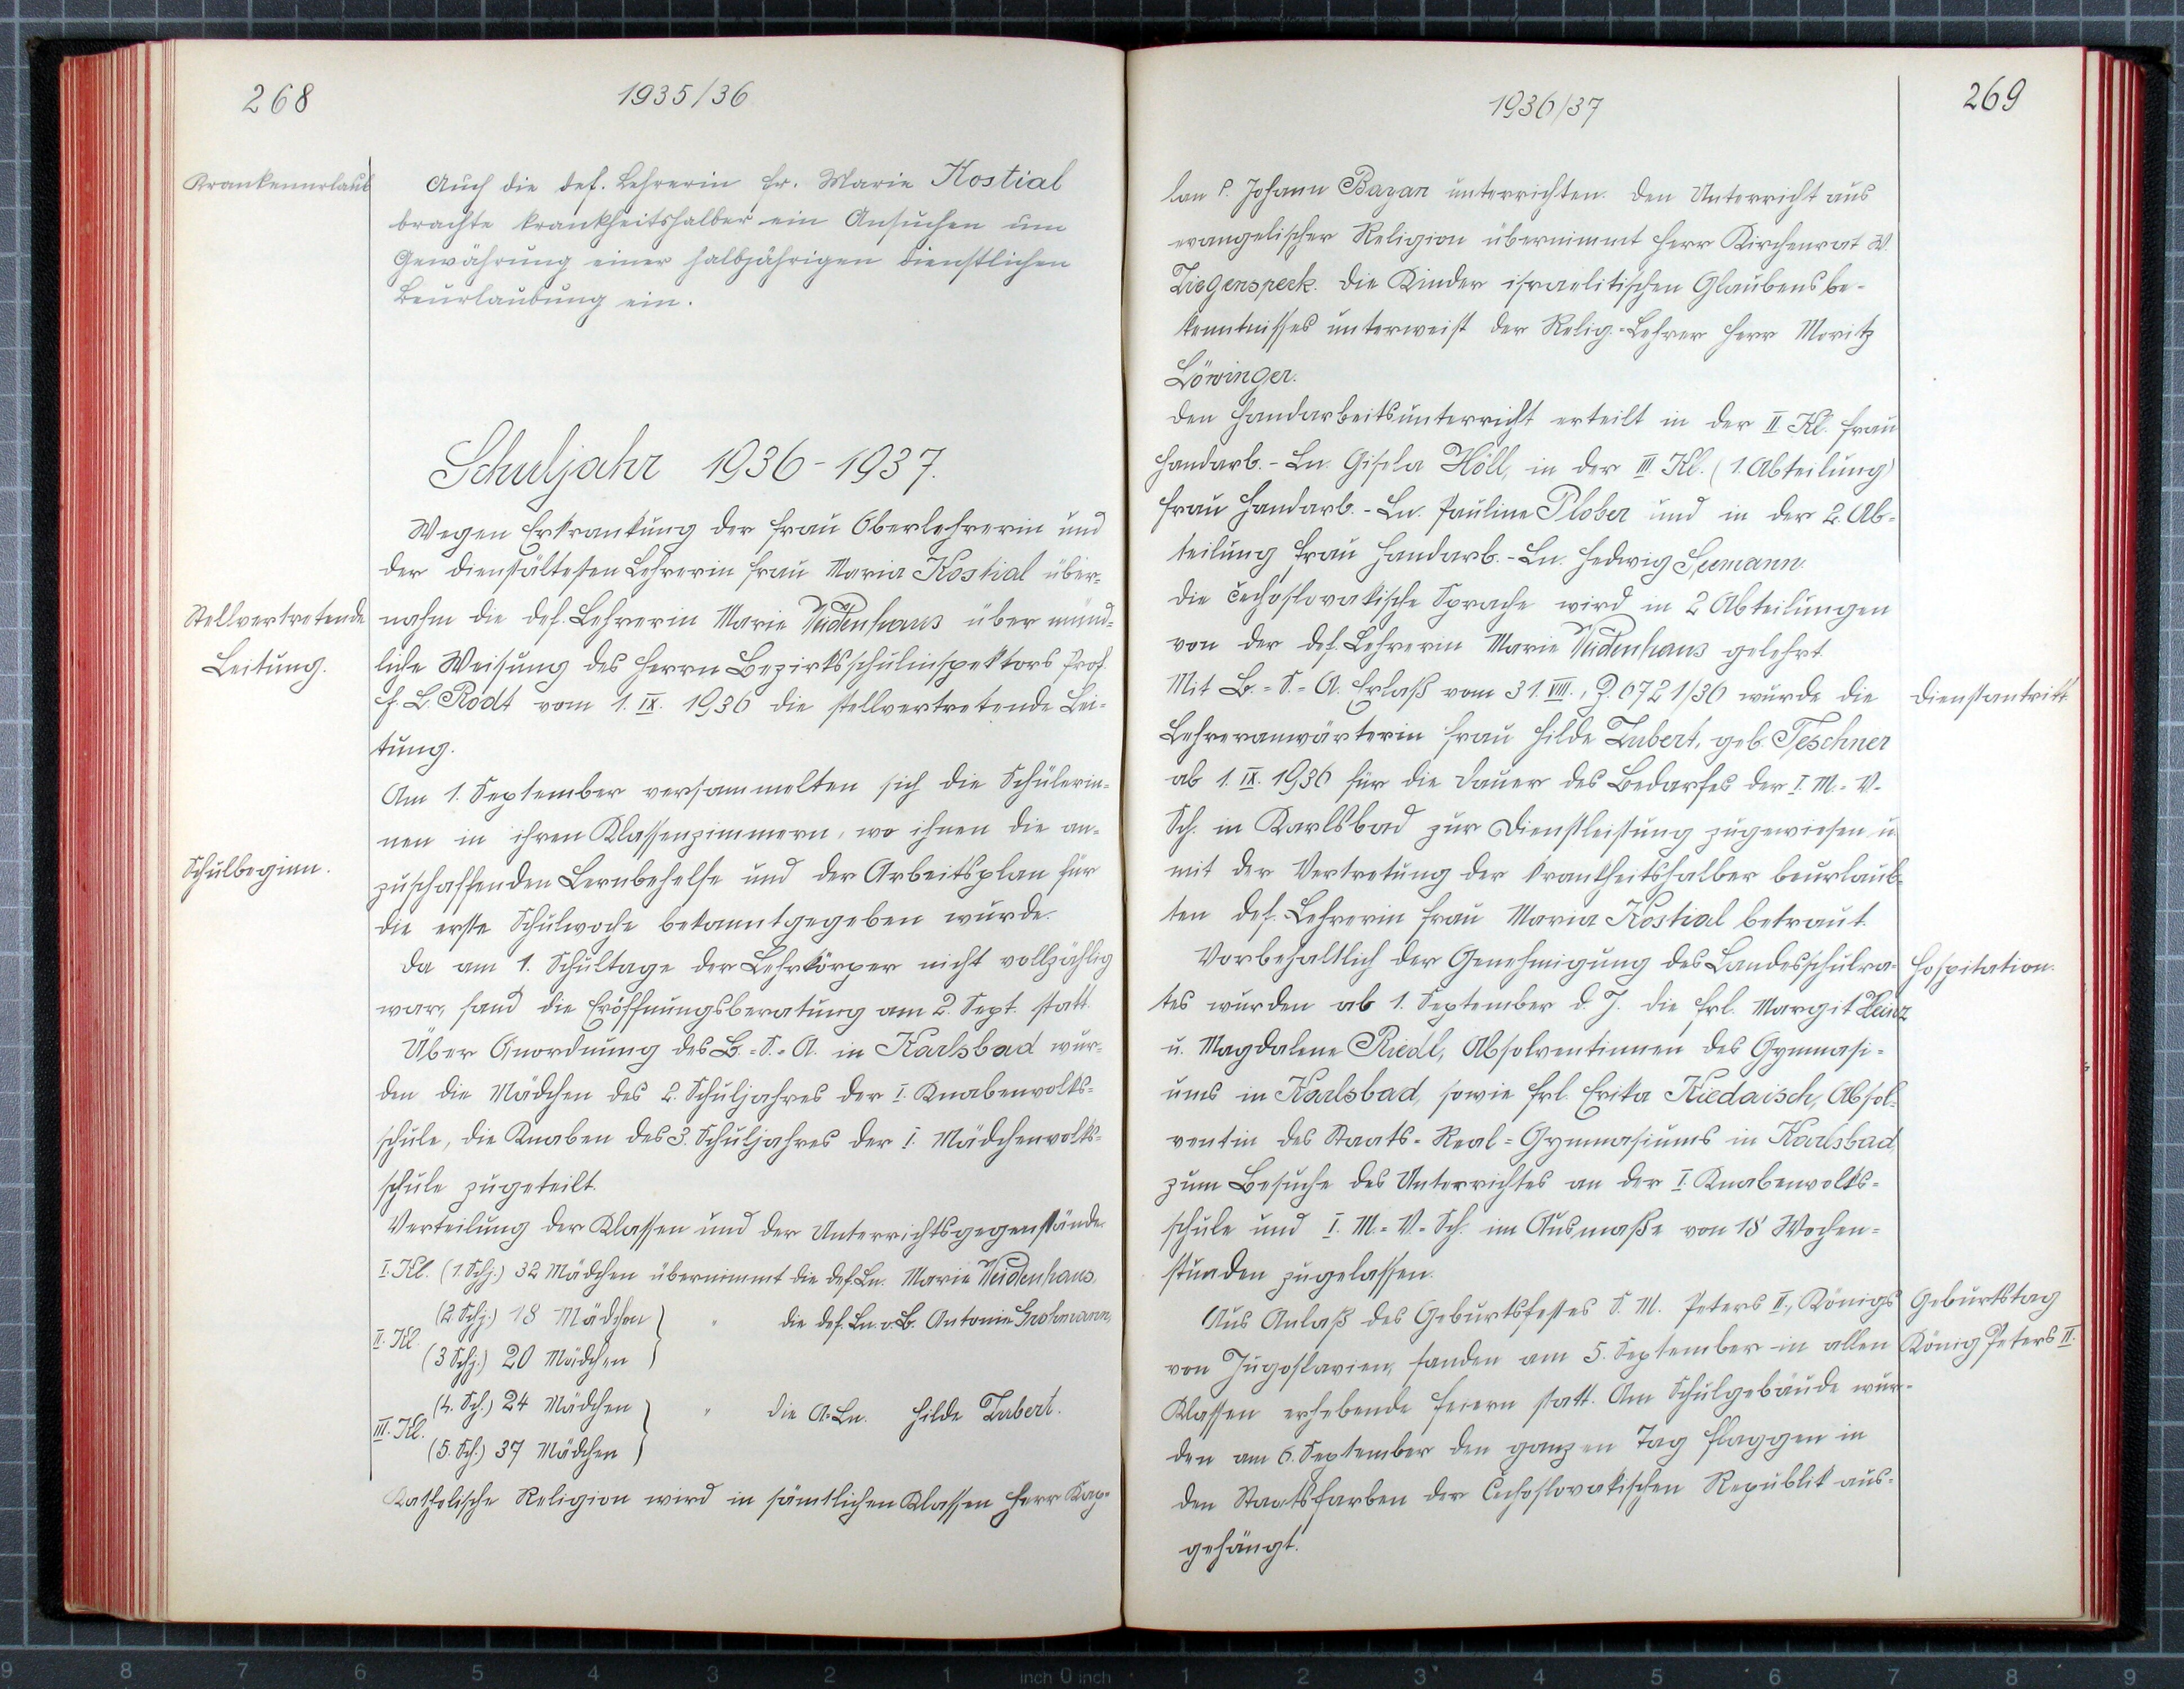 268
1935/36
Krankenurlaub
Auch die def. Lehrerin Fr. Marie Kostial
brachte krankheitshalber ein Ansuchen um
Gewährung einer halbjährigen dienstlichen
Beurlaubung ein.
Schuljahr 1936-1937.
Wegen Erkrankung der Frau Oberlehrerin und
der dienstältesten Lehrerin Frau Maria Kostial über-
Stellvertretende
Leitung.
nahm die def. Lehrerin Marie Veidenhaus über münd-
liche Weisung des Herrn Bezirksschulinspektors Prof.
F. L. Rodt vom 1. IX. 1936 die stellvertretende Lei-
tung.
Am 1. September versammelten sich die Schülerin-
nen in ihren Klassenzimmern, wo ihnen die an-
Schulbeginn.
zuschaffenden Lernbehelfe und der Arbeitsplan für
die erste Schulwoche bekanntgegeben wurde.
Da am 1. Schultage der Lehrkörper nicht vollzählig
war, fand die Eröffnungsberatung am 2. Sept. statt.
Über Anordnung des B.-S.-A. in Karlsbad wur-
den die Mädchen des 2. Schuljahres der I. Knabenvolks-
schule, die Knaben des 3. Schuljahres der I. Mädchenvolks-
schule zugeteilt.
Verteilung der Klassen und der Unterrichtsgegenstände
I. Kl. (1. Schj.) 32 Mädchen übernimmt die def. Ln. Marie Veidenhaus,
II. Kl. (2. Schj.) 18 Mädchen " die def. Ln. v. B. Antonie Grohmann,
(3 Schj.) 20 Mädchen
III. Kl. (4. Sch.) 24 Mädchen " die A.-Ln. Hilde Zubert.
(5. Sch.) 37 Mädchen
Katholische Religion wird in sämtlichen Klassen Herr Kap-
1936/37
269
lan P. Johann Bayan unterrichten. Den Unterricht aus
evangelischer Religion übernimmt Herr Kirchenrat W.
Ziegenspeck. Die Kinder israelitischen Glaubensbe-
kenntnisses unterweist der Relig.-Lehrer Herr Moritz
Löwinger.
Den Handarbeitsunterricht erteilt in der II Kl. Frau
Handarb.-Ln. Gisela Höll, in der III. Kl. (1. Abteilung)
Frau Handarb.-Ln. Pauline Plober und in der 2. Ab-
teilung Frau Handarb.-Ln. Hedwig Seemann.
Die čechoslovakische Sprache wird in 2 Abteilungen
von der def. Lehrerin Marie Veidenhaus gelehrt.
Mit B.-S.-A. Erlaß vom 31. VIII., Z. 6721/36 wurde die
Dienstantritt
Lehreranwärterin Frau Hilde Zubert, geb. Teschner
ab 1. IX. 1936 für die Dauer des Bedarfes der I. M.-V.-
Sch. in Karlsbad zur Dienstleistung zugewiesen u.
mit der Vertretung der krankheitshalber beurlaub-
ten def. Lehrerin Frau Maria Kostial betraut.
Vorbehaltlich der Genehmigung des Landesschulra-
Hospitation.
tes wurden ab 1. September d. J. die Frl. Margit Heinz
u. Magdalene Riedl, Absolventinnen des Gymnasi-
ums in Karlsbad, sowie Frl. Erika Kiedaisch, Absol-
ventin des Staats-Real-Gymnasiums in Karlsbad,
zum Besuche des Unterrichtes an der I. Knabenvolks-
schule und I. M.-V.-Sch. im Ausmaße von 18 Wochen-
stunden zugelassen.
Aus Anlaß des Geburtsfestes S. M. Peters II., Königs
Geburtstag
König Peters II.
von Jugoslavien, fanden am 5. September in allen
Klassen erhebende Feiern statt. Am Schulgebäude wur-
den am 6. September den ganzen Tag Flaggen in
den Staatsfarben der Čechoslovakischen Republik aus-
gehängt.
9 8 7 6 5 4 3 2 1 inch 0 inch 1 2 3 4 5 6 7 8 9